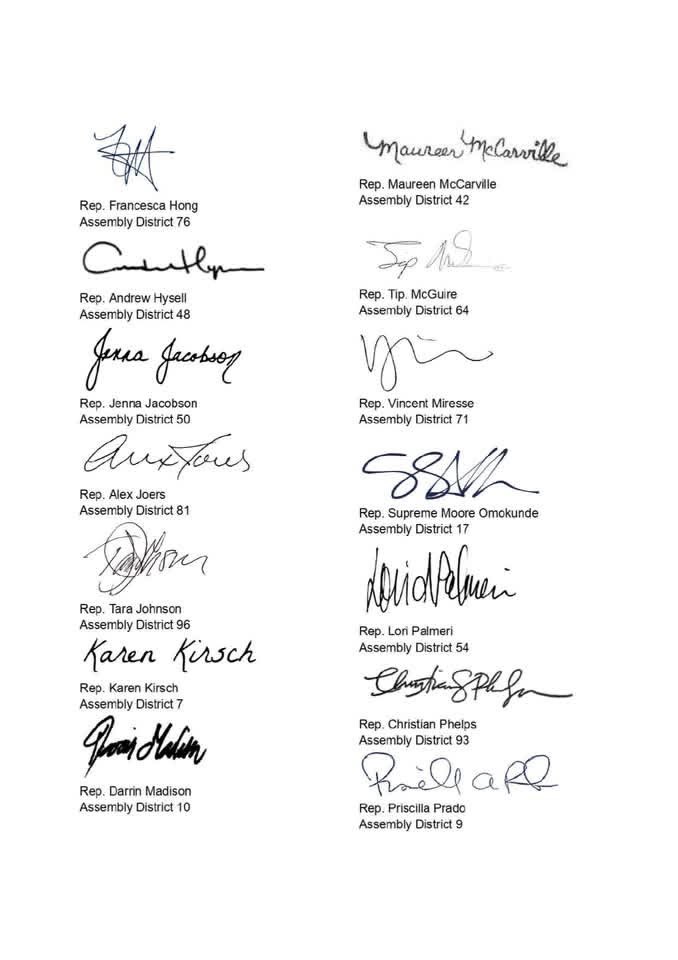 Rep. Francesca Hong
Assembly District 76
Rep. Andrew Hysell
Assembly District 48
Jenna Jacobson
Rep. Jenna Jacobson
Assembly District 50
Alex Joers
Rep. Alex Joers
Assembly District 81
Rep. Tara Johnson
Assembly District 96
Karen Kirsch
Rep. Karen Kirsch
Assembly District 7
Rep. Darrin Madison
Assembly District 10
Maureen McCarville
Rep. Maureen McCarville
Assembly District 42
Rep. Tip. McGuire
Assembly District 64
Rep. Vincent Miresse
Assembly District 71
Rep. Supreme Moore Omokunde
Assembly District 17
Rep. Lori Palmeri
Assembly District 54
Rep. Christian Phelps
Assembly District 93
Rep. Priscilla Prado
Assembly District 9